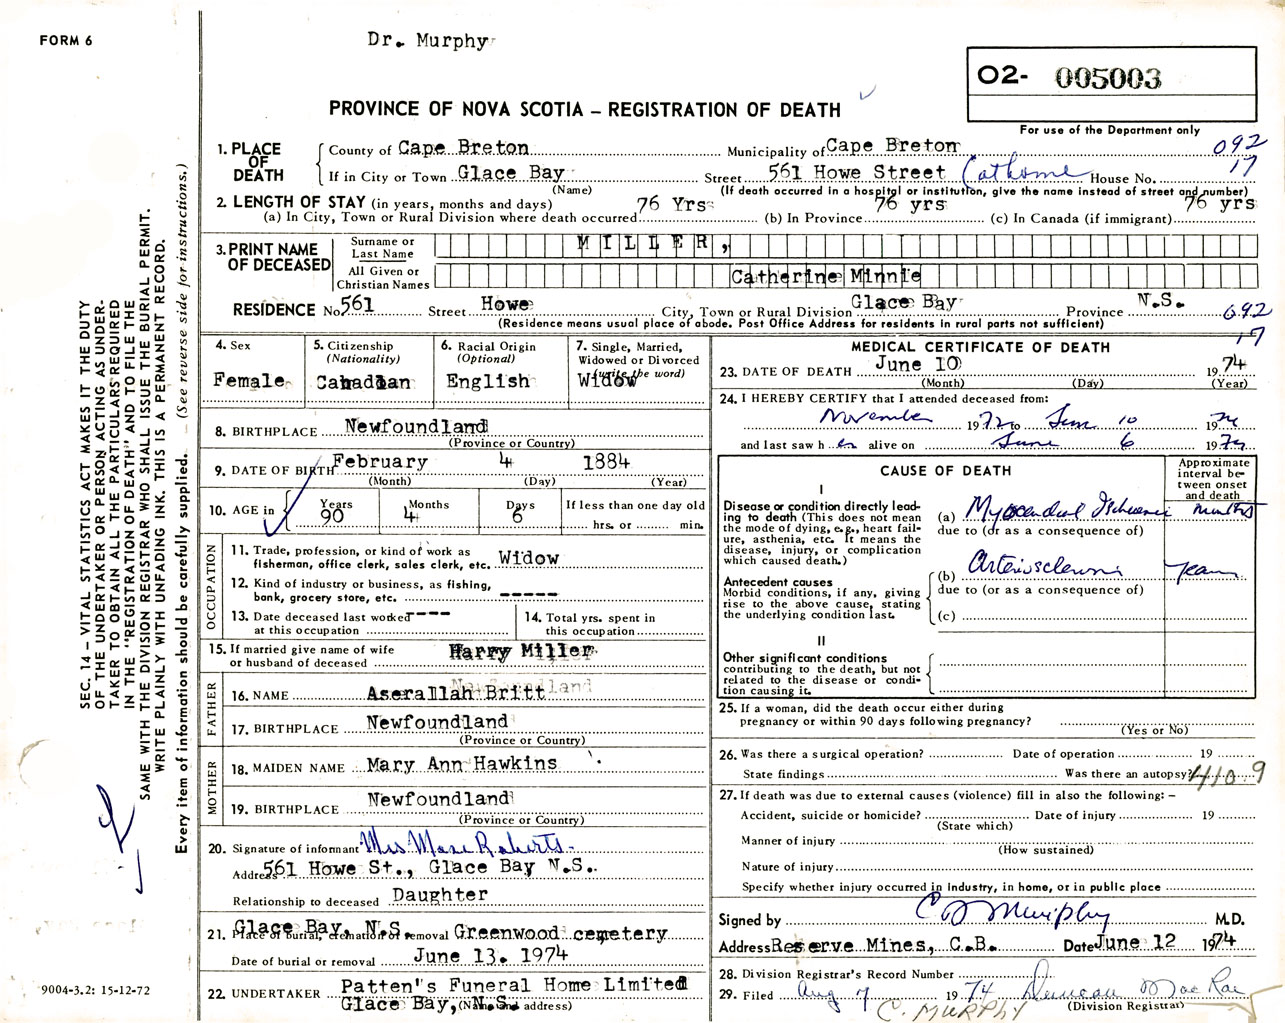 FORM 6
Dr. Murphy
O2- 005003
PROVINCE OF NOVA SCOTIA – REGISTRATION OF DEATH
For use of the Department only
092
17
1. PLACE OF DEATH
County of Cape Breton Municipality of Cape Breton
If in City or Town Glace Bay Street 561 Howe Street (at home House No.
(Name) (If death occurred in a hospital or institution, give the name instead of street and number)
2. LENGTH OF STAY (in years, months and days) 76 Yrs 76 yrs 76 yrs
(a) In City, Town or Rural Division where death occurred (b) In Province (c) In Canada (if immigrant)
3. PRINT NAME OF DECEASED
Surname or Last Name MILLER,
All Given or Christian Names Catherine Minnie
RESIDENCE No. 561 Street Howe City, Town or Rural Division Glace Bay Province N.S.
(Residence means usual place of abode. Post Office Address for residents in rural parts not sufficient)
692
17
4. Sex
Female
5. Citizenship
(Nationality)
Canadian
6. Racial Origin
(Optional)
English
7. Single, Married,
Widowed or Divorced
(write the word)
Widow
8. BIRTHPLACE Newfoundland
(Province or Country)
9. DATE OF BIRTH February 4 1884
(Month) (Day) (Year)
10. AGE in Years Months Days If less than one day old
90 4 6 hrs. or min.
OCCUPATION
11. Trade, profession, or kind of work as
fisherman, office clerk, sales clerk, etc. Widow
12. Kind of industry or business, as fishing,
bank, grocery store, etc. -----
13. Date deceased last worked ----
at this occupation
14. Total yrs. spent in
this occupation
15. If married give name of wife
or husband of deceased Harry Miller
FATHER
Newfoundland
16. NAME Aserallah Britt
17. BIRTHPLACE Newfoundland
(Province or Country)
MOTHER
18. MAIDEN NAME Mary Ann Hawkins
19. BIRTHPLACE Newfoundland
(Province or Country)
20. Signature of informant Mrs Mase Roberts
Address 561 Howe St., Glace Bay N.S.
Relationship to deceased Daughter
21. Place of burial, cremation or removal Glace Bay, N.S. Greenwood cemetery
Date of burial or removal June 13. 1974
22. UNDERTAKER Patten's Funeral Home Limited
Glace Bay, N.S.
(Name and address)
MEDICAL CERTIFICATE OF DEATH
23. DATE OF DEATH June 10 1974
(Month) (Day) (Year)
24. I HEREBY CERTIFY that I attended deceased from:
November 1972 to June 10 1974
and last saw her alive on June 6 1974
CAUSE OF DEATH
Approximate interval between onset and death
I
Disease or condition directly leading to death (This does not
mean the mode of dying, e.g., heart failure, asthenia, etc. It means the
disease, injury, or complication
which caused death.)
(a) Myocardial Ischemia minutes
due to (or as a consequence of)
Antecedent causes
Morbid conditions, if any, giving
rise to the above cause, stating
the underlying condition last.
(b) Arteriosclerosis years
due to (or as a consequence of)
(c)
II
Other significant conditions
contributing to the death, but not
related to the disease or condition causing it.
25. If a woman, did the death occur either during
pregnancy or within 90 days following pregnancy?
(Yes or No)
26. Was there a surgical operation? Date of operation 19
State findings Was there an autopsy?
410 9
27. If death was due to external causes (violence) fill in also the following: –
Accident, suicide or homicide? Date of injury 19
(State which)
Manner of injury
(How sustained)
Nature of injury
Specify whether injury occurred in Industry, in home, or in public place
Signed by C D Murphy M.D.
Address Reserve Mines, C.B. Date June 12 1974
28. Division Registrar's Record Number
29. Filed Aug 7 1974 Duncan MacRae
(Division Registrar)
C. MURPHY
SEC. 14 – VITAL STATISTICS ACT MAKES IT THE DUTY
OF THE UNDERTAKER OR PERSON ACTING AS UNDER-
TAKER TO OBTAIN ALL THE PARTICULARS REQUIRED
IN THE "REGISTRATION OF DEATH" AND TO FILE THE
SAME WITH THE DIVISION REGISTRAR WHO SHALL ISSUE THE BURIAL PERMIT.
WRITE PLAINLY WITH UNFADING INK. THIS IS A PERMANENT RECORD.
Every item of information should be carefully supplied. (See reverse side for instructions.)
9004-3.2: 15-12-72